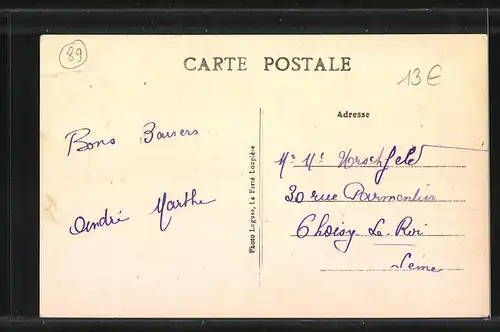 89
CARTE POSTALE
13€
Adresse
Bons Baisers
André Marthe
Photo Logues, La Ferté Loupière
30 rue Parmentier
Choisy Le Roi
Seine